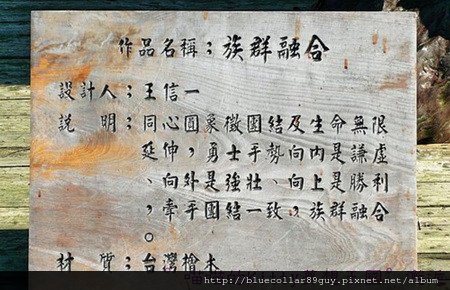 作品名稱；族群融合
設計人；王信一
説　明；同心圓象徵團結及生命無限
延伸，勇士手勢向內是謙虛
、向外是強壯、向上是勝利
，牽手團結一致，族群融合
。
材　質；台灣檜木
http://bluecollar89guy.pixnet.net/album